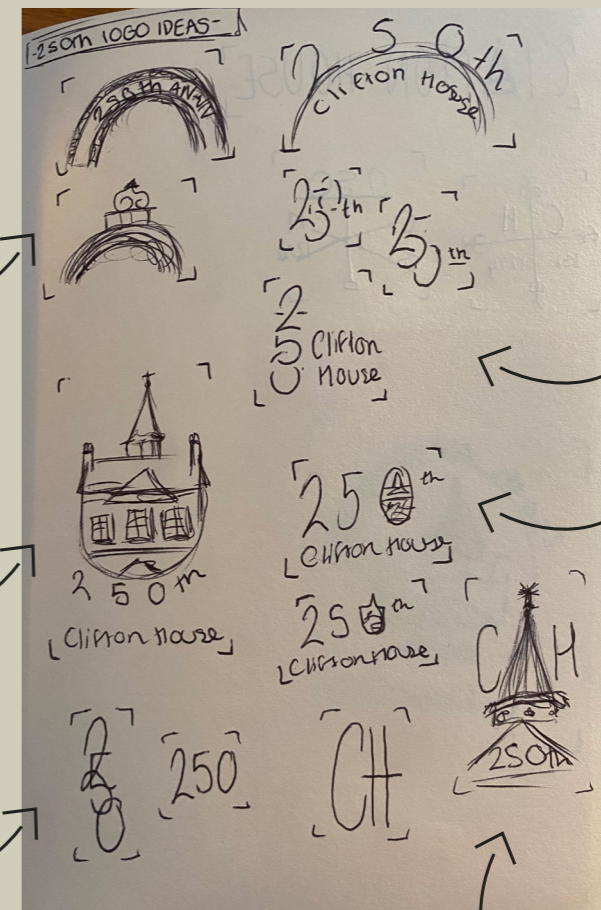 -250th LOGO IDEAS-
250th ANNIV
250th
Clifton House
250th
250th
2
5 Clifton
0 House
250th
Clifton House
250th
Clifton House
250th
Clifton House
C H
250th
250
250
CH